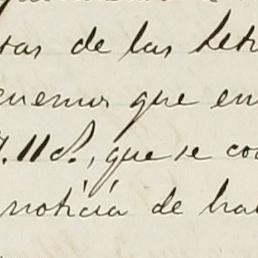 tas de las letr
enemos que en
118., que se co
noticia de ha